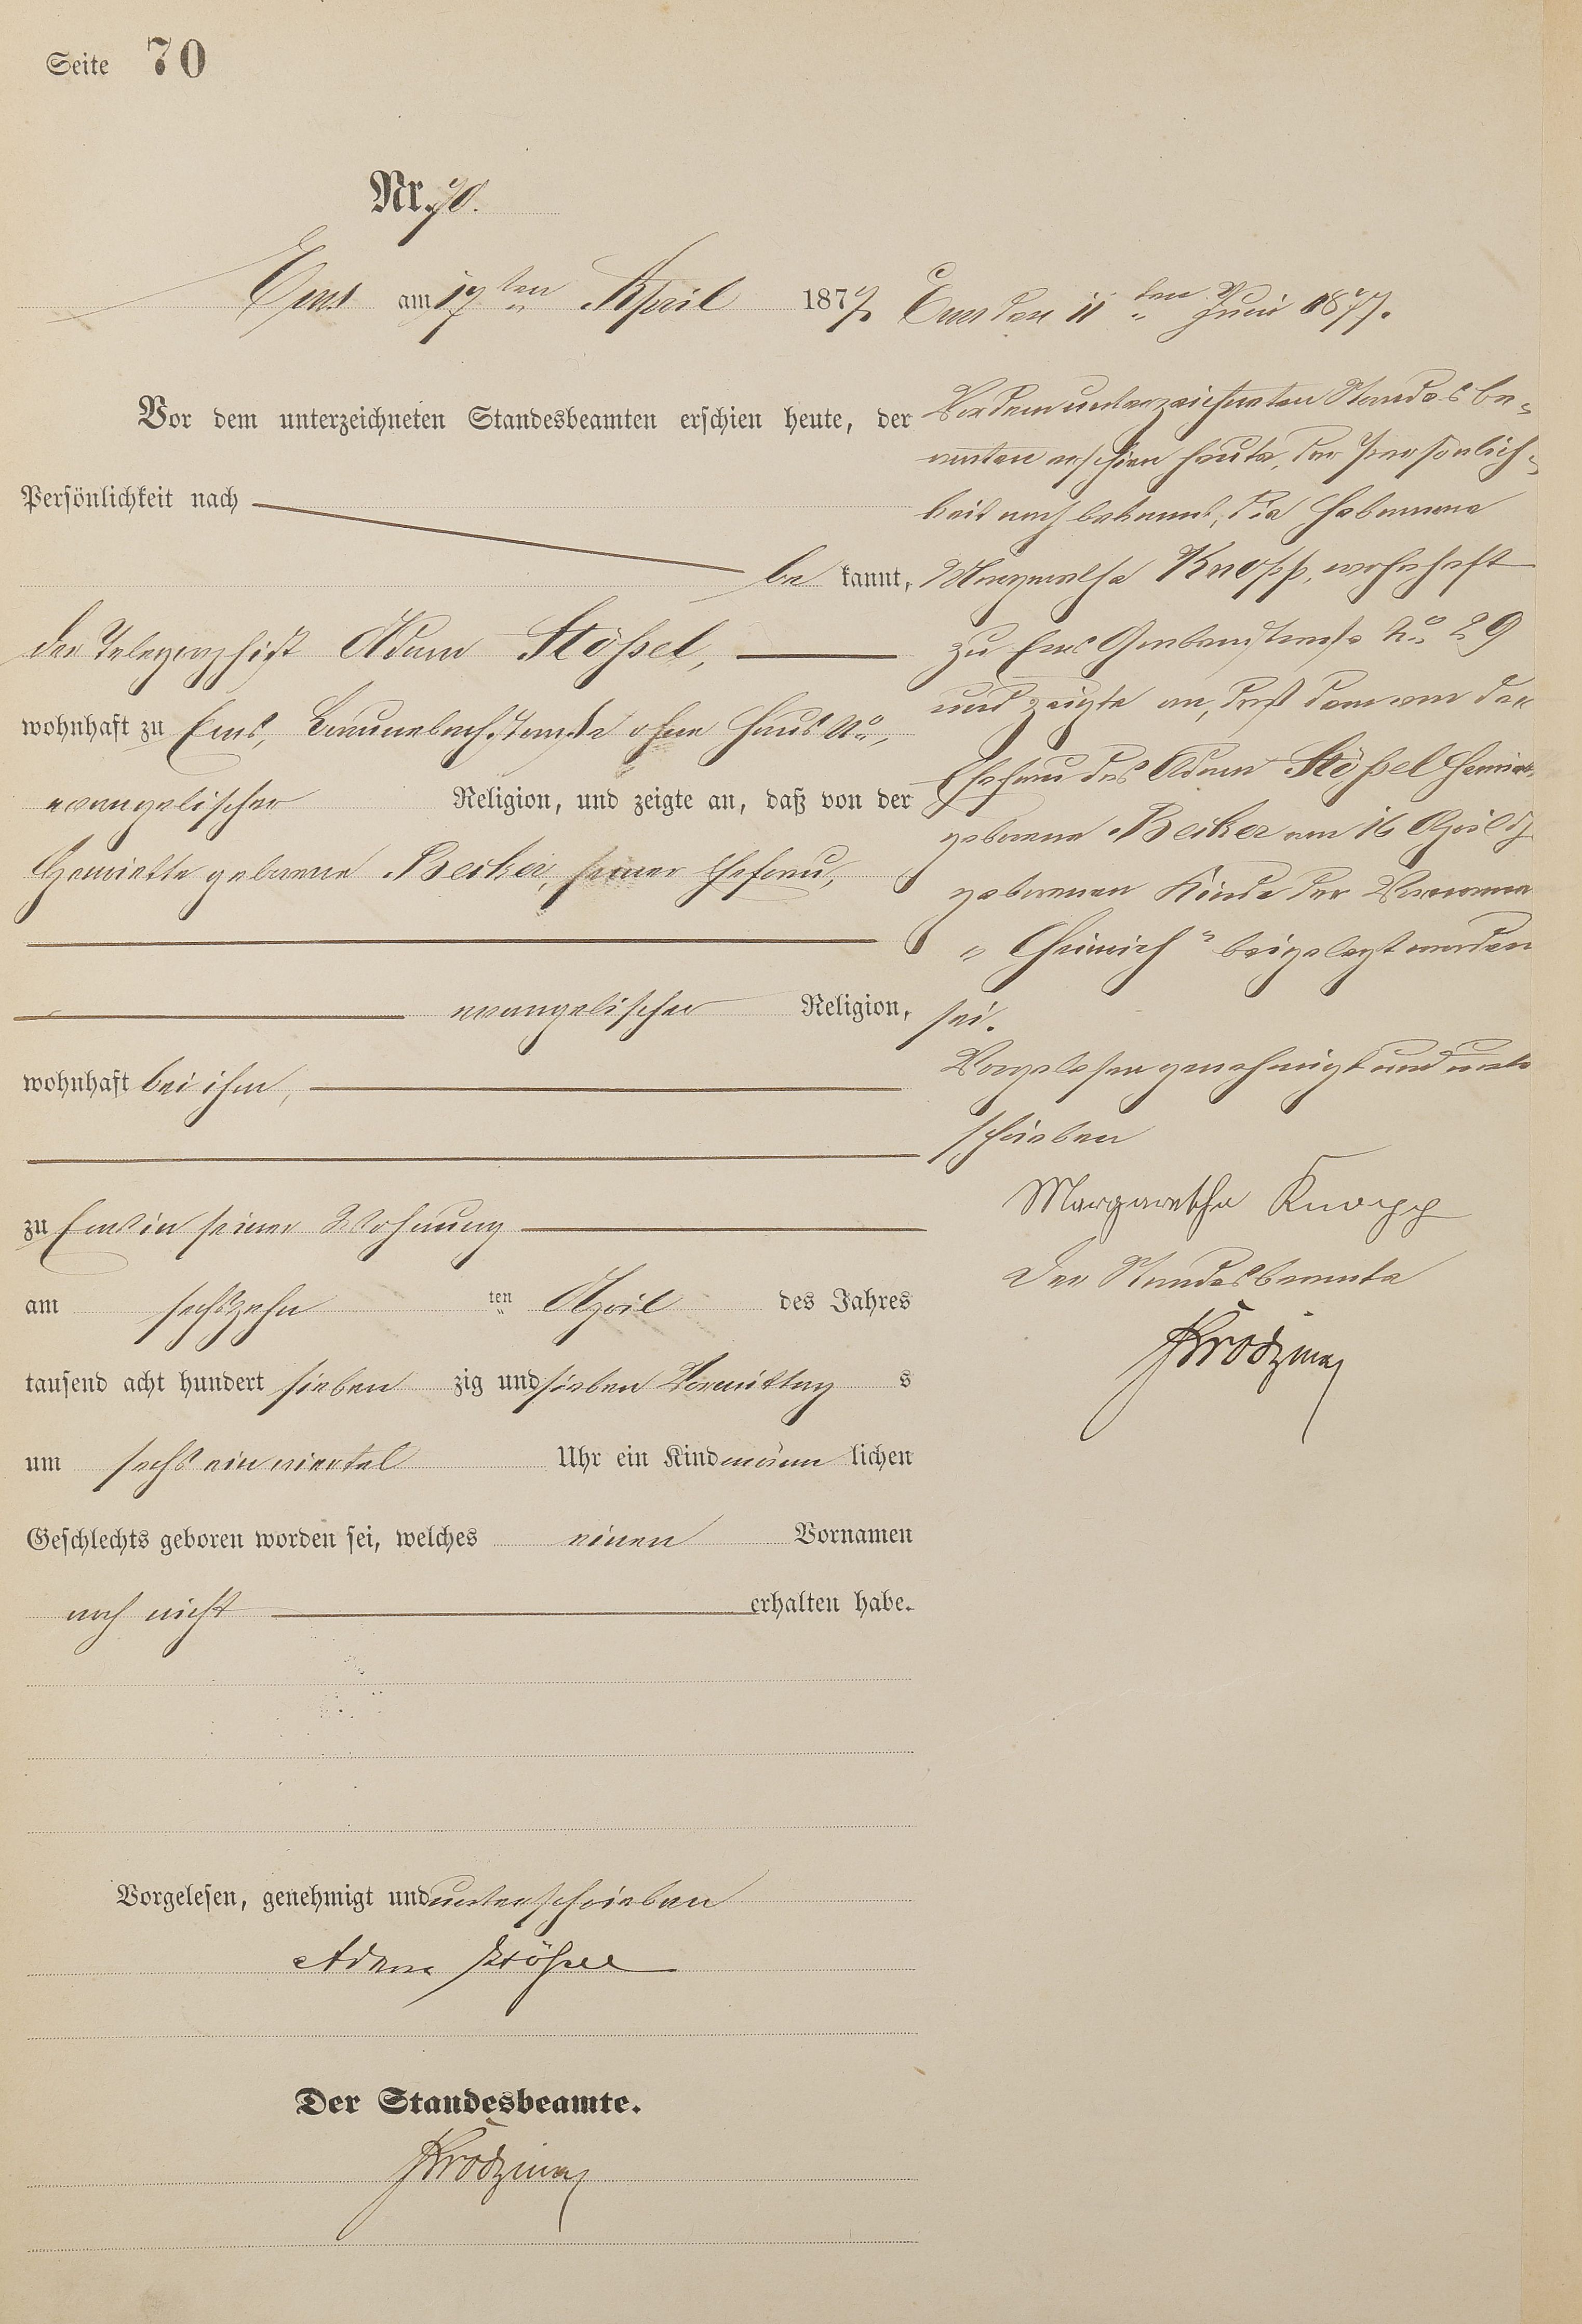 Seite 70
Nr. 70.
Ems am 17ten April 1877.
Vor dem unterzeichneten Standesbeamten erschien heute, der
Persönlichkeit nach
bekannt,
der Telegraphist Adam Stößel,
wohnhaft zu Ems, straße ohne Haus No,
evangelischer Religion, und zeigte an, daß von der
Henriette geborene Becker, seiner Ehefrau,
evangelischer Religion,
wohnhaft bei ihm,
zu Ems in seiner Wohnung
am sechszehn ten April des Jahres
tausend acht hundert siebenzig und sieben Vormittags
um sechs ein viertel Uhr ein Kind männlichen
Geschlechts geboren worden sei, welches einen Vornamen
noch nicht erhalten habe.
Vorgelesen, genehmigt und unterschrieben
Adam Stößel
Der Standesbeamte.
Ems den 11ten Juni 1877.
Vor dem unterzeichneten Standesbe-
amten erschien heute, der Persönlich-
keit nach bekannt, die Hebamme
Margaretha Knopp, wohnhaft
zu Ems Grabenstraße No 29
und zeigte an, daß dem von der
Ehefrau des Adam Stößel Henriette
geborene Becker am 16 April d J
geborenen Kinde der Vorname
"Heinrich" beigelegt worden
sei.
Vorgelesen genehmigt und unter
schrieben
Margaretha Knopp
Der Standesbeamte